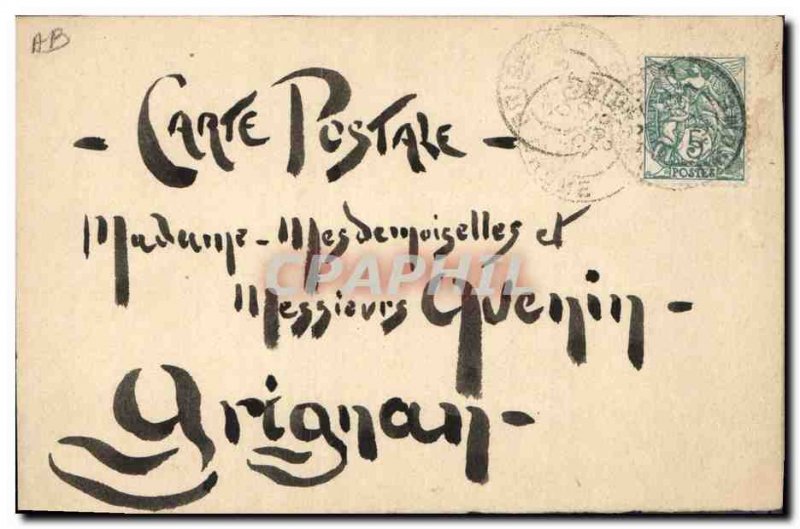 AB
- CARTE POSTALE -
5
POSTES
Madame - Mesdemoiselles et
CPAPHIL
Messieurs Quenin -
Grignan -